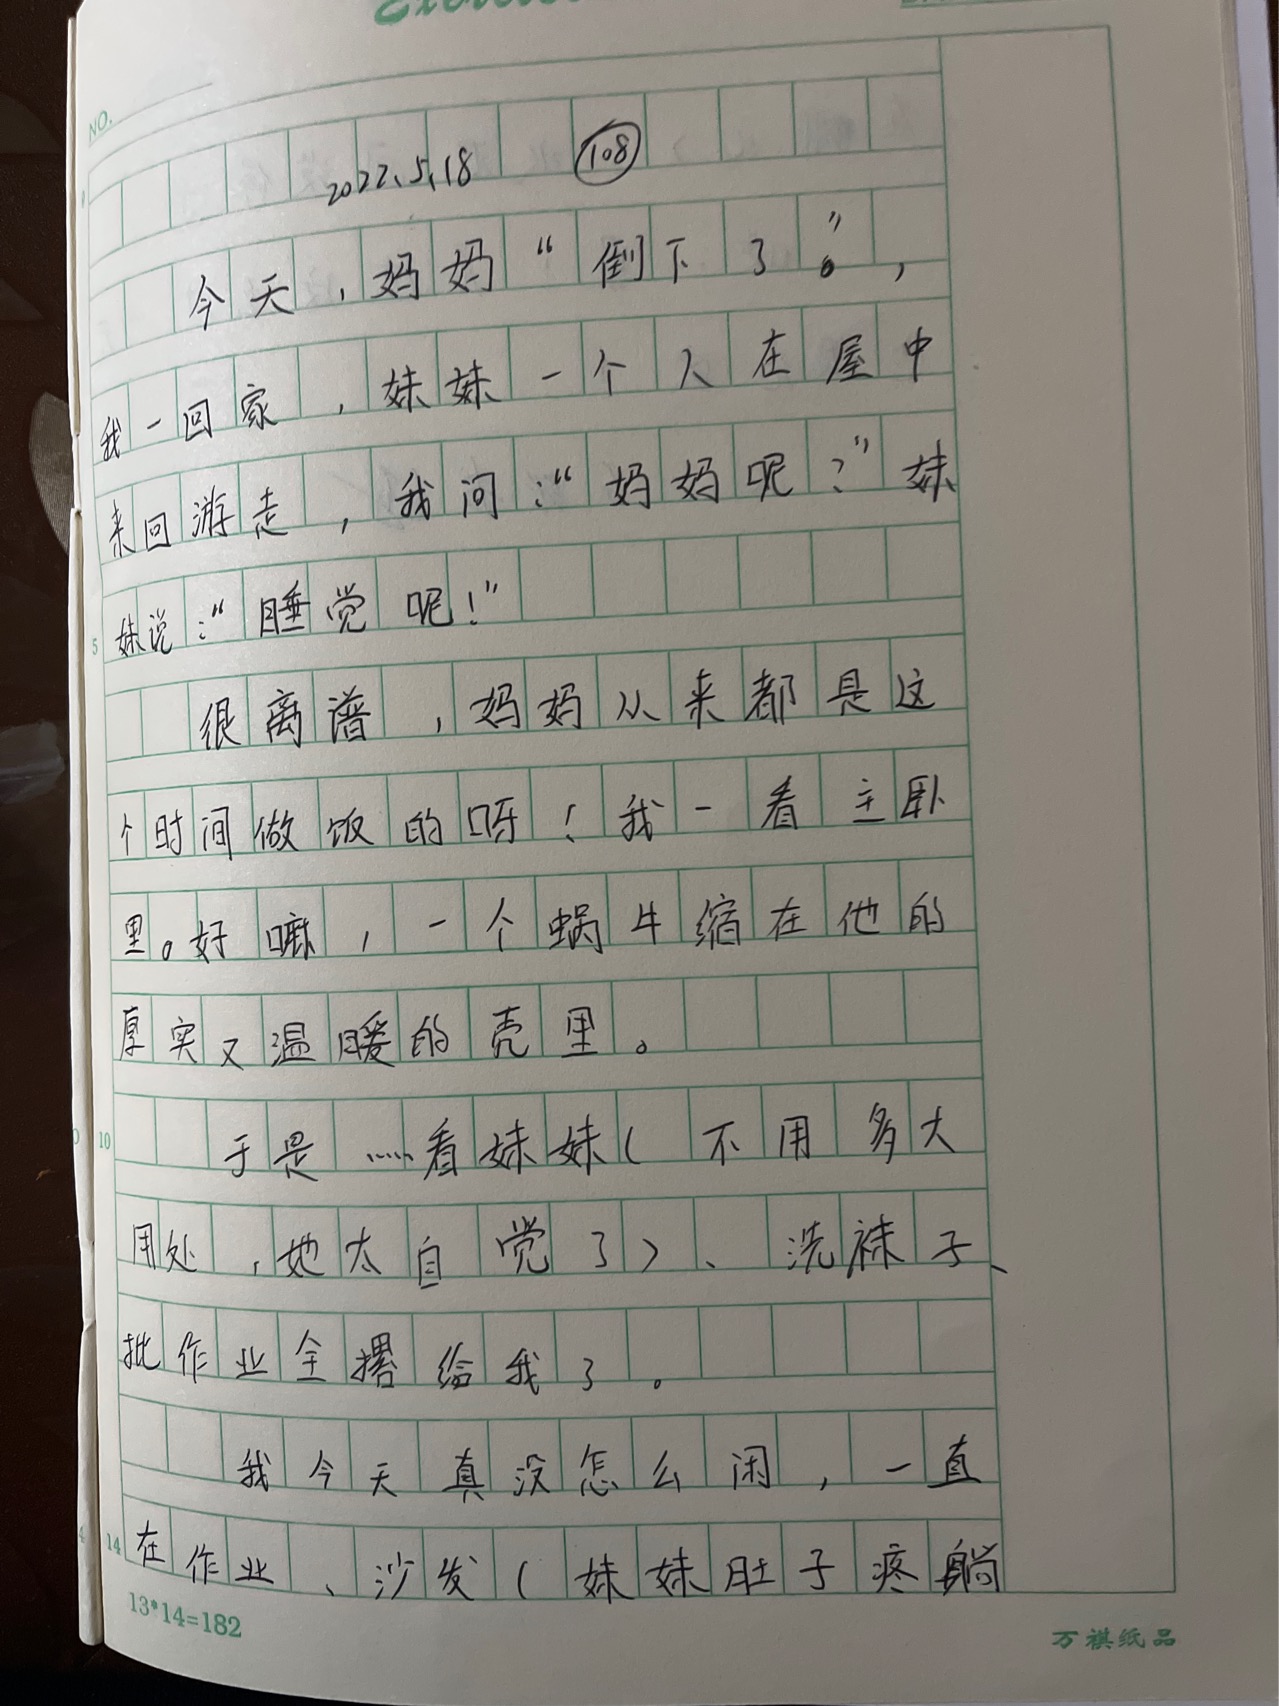 NO.
2022、5、18 108
今天，妈妈“倒下了。”，
我一回家，妹妹一个人在屋中
来回游走，我问：“妈妈呢？”妹
妹说：“睡觉呢！”
5
很离谱，妈妈从来都是这
个时间做饭的呀！我一看主卧
里。好嘛，一个蜗牛缩在他的
厚实又温暖的壳里。
于是……看妹妹（不用多大
10
用处，她太自觉了）、洗袜子、
批作业全撂给我了。
我今天真没怎么闲，一直
在作业、沙发（妹妹肚子疼躺
14
13*14=182
万祺纸品